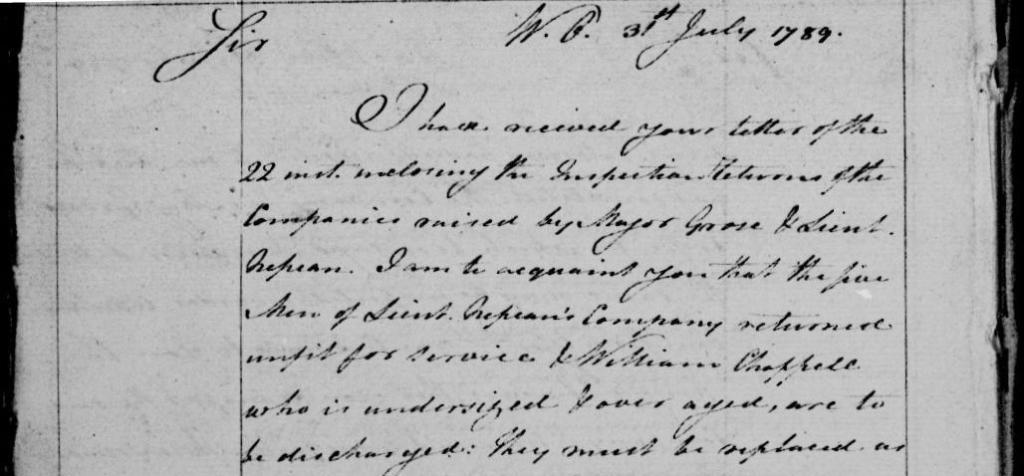 Sir W.O. 31st July 1789.
I have received your letter of the
22 inst. inclosing the Inspection Returns of the
Companies raised by Major Grose & Lieut.
Nepean. I am to acquaint you that the five
Men of Lieut. Nepean's Company returned
unfit for service & William Chappell
who is undersized & over aged, are to
be discharged: they must be replaced as